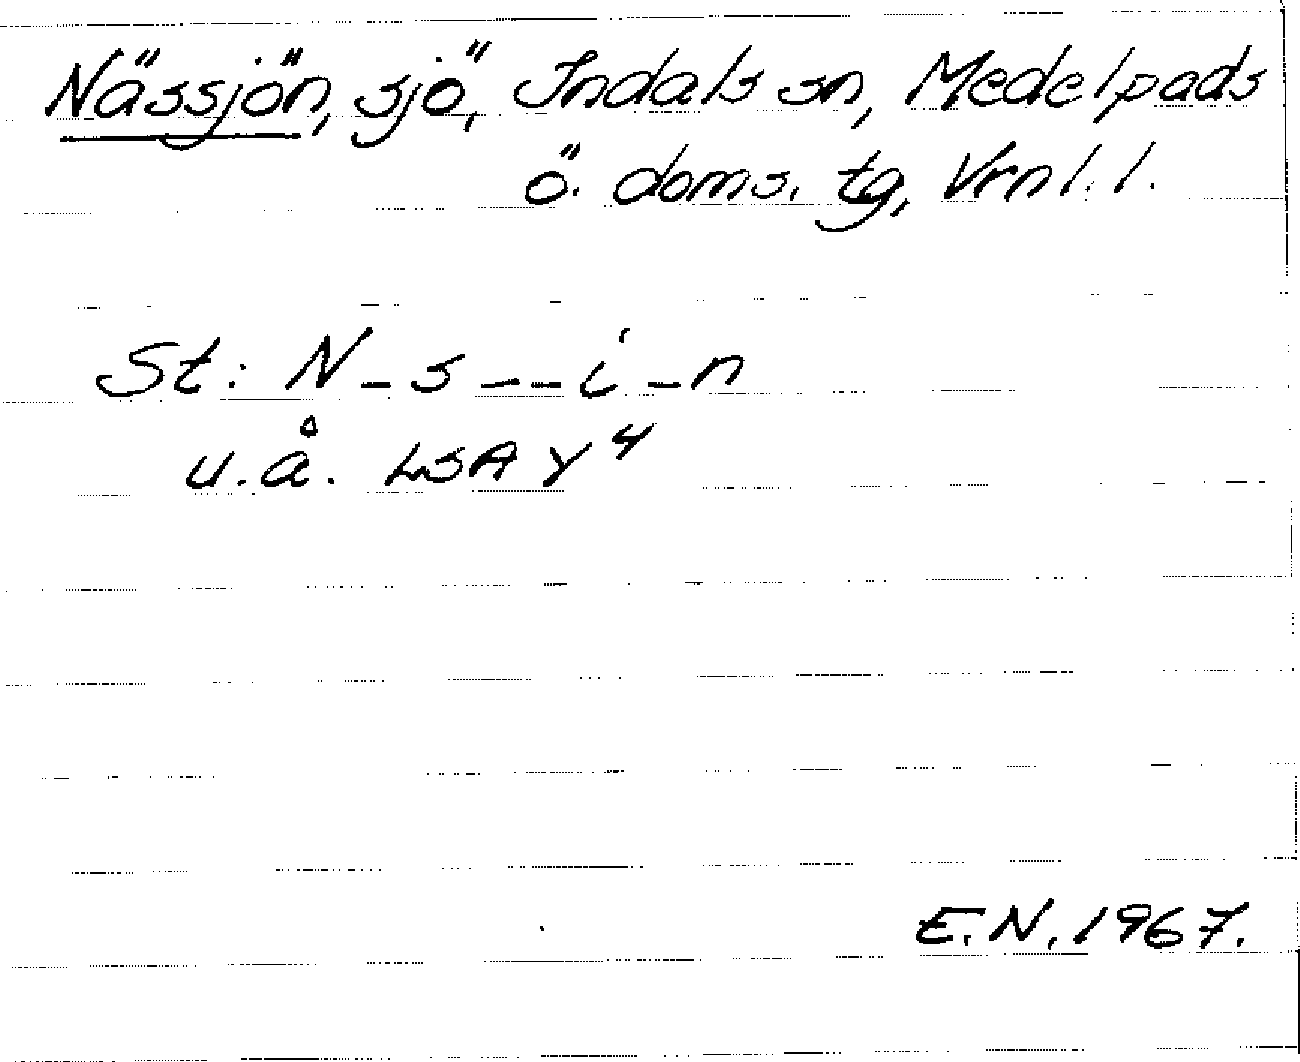 Nässjön, sjö, Indals sn, Medelpads
ö. doms. tg, Vrnl. l.
St: N_s__i_n
u.å. LSA Y4
E.N. 1967.